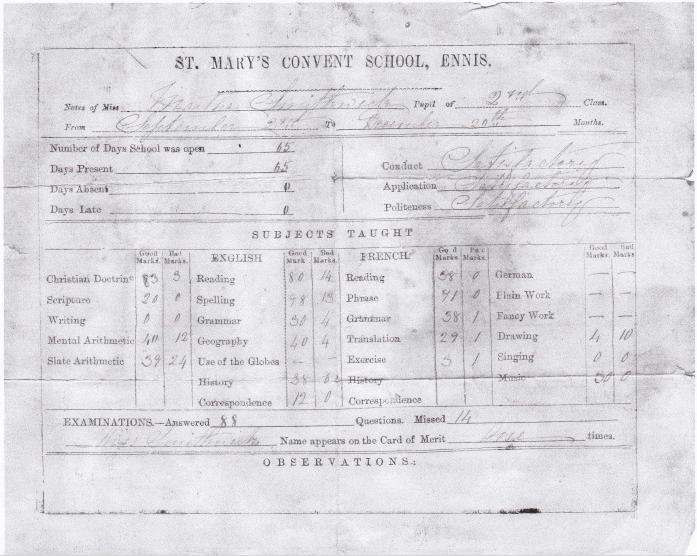 ST. MARY'S CONVENT SCHOOL, ENNIS.
Notes of Miss Smithwick Pupil of 2nd Class.
From September 2nd To December 20th Months.
Number of Days School was open 65
Days Present 65
Days Absent 0
Days Late 0
Conduct Satisfactory
Application Satisfactory
Politeness Satisfactory
SUBJECTS TAUGHT
Good Marks. Bad Marks. ENGLISH Good Mark Bad Marks. FRENCH Good Marks Bad Marks. Good Marks. Bad Marks.
Christian Doctrine 83 3 Reading 80 14 Reading 38 0 German — —
Scripture 20 0 Spelling 98 13 Phrase 41 0 Plain Work — —
Writing 0 0 Grammar 30 4 Grammar 38 1 Fancy Work — —
Mental Arithmetic 40 12 Geography 40 4 Translation 29 1 Drawing 4 10
Slate Arithmetic 39 24 Use of the Globes — — Exercise 3 1 Singing 0 0
History 38 History Music 30 0
Correspondence 12 0 Correspondence
EXAMINATIONS.—Answered 88 Questions. Missed 14
Miss Smithwick Name appears on the Card of Merit times.
OBSERVATIONS.: